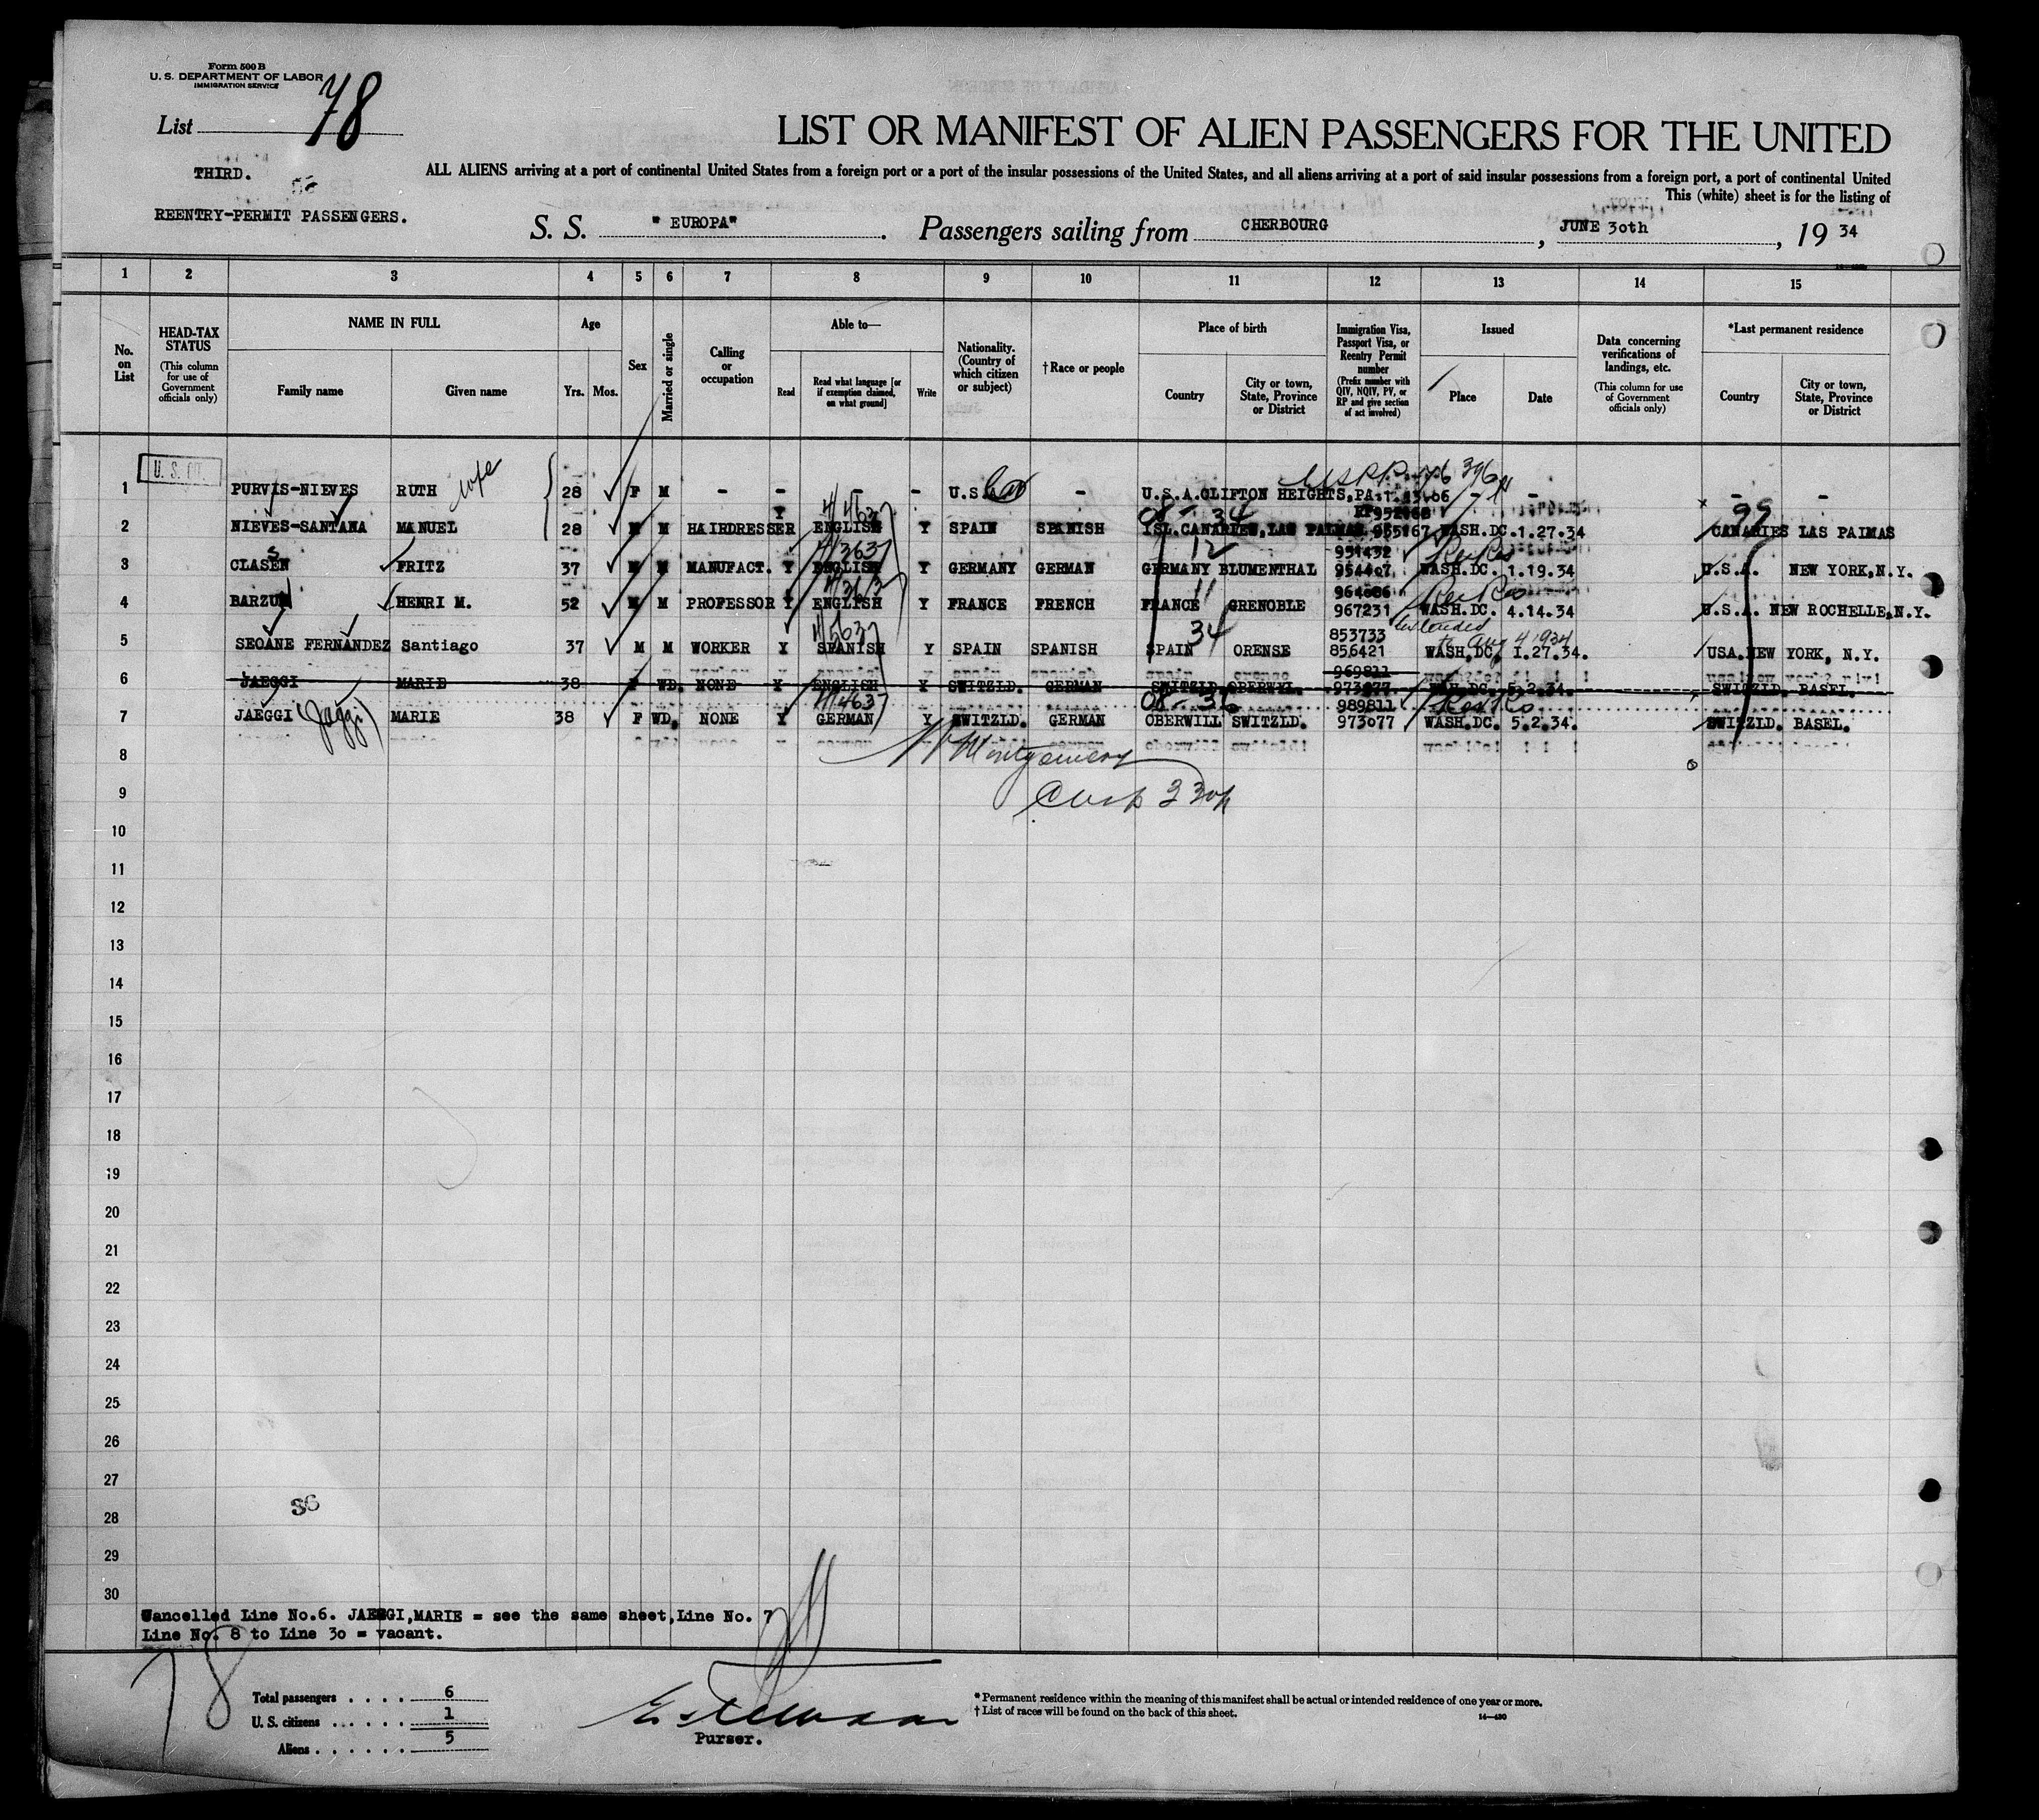 Form 500 B
U. S. DEPARTMENT OF LABOR
IMMIGRATION SERVICE
List 78
LIST OR MANIFEST OF ALIEN PASSENGERS FOR THE UNITED
THIRD.
ALL ALIENS arriving at a port of continental United States from a foreign port or a port of the insular possessions of the United States, and all aliens arriving at a port of said insular possessions from a foreign port, a port of continental United
This (white) sheet is for the listing of
REENTRY-PERMIT PASSENGERS.
S. S. "EUROPA". Passengers sailing from CHERBOURG, JUNE 30th, 19 34
1 2 3 4 5 6 7 8 9 10 11 12 13 14 15
No. on List
HEAD-TAX STATUS (This column for use of Government officials only)
NAME IN FULL Family name Given name
Age Yrs. Mos.
Sex
Married or single
Calling or occupation
Able to— Read Read what language [or if exemption claimed, on what ground] Write
Nationality. (Country of which citizen or subject)
†Race or people
Place of birth Country City or town, State, Province or District
Immigration Visa, Passport Visa, or Reentry Permit number (Prefix number with QIV, NQIV, PV, or RP and give section of act involved)
Issued Place Date
Data concerning verifications of landings, etc. (This column for use of Government officials only)
*Last permanent residence Country City or town, State, Province or District
U. S. CIT.
1 PURVIS-NIEVES RUTH wife 28 F M - - - - U.S.A. - U.S.A. CLIFTON HEIGHTS, PA. - - - -
2 NIEVES-SANTANA MANUEL 28 M M HAIRDRESSER Y ENGLISH Y SPAIN SPANISH ISL.CANARIEN, LAS PALMAS 955167 WASH.DC. 1.27.34 CANARIES LAS PALMAS
08 - 34 99
3 CLASEN FRITZ 37 M M MANUFACT. Y ENGLISH Y GERMANY GERMAN GERMANY BLUMENTHAL 951432 954407 WASH.DC. 1.19.34 U.S.A. NEW YORK, N.Y.
12
4 BARZUN HENRI M. 52 M M PROFESSOR Y ENGLISH Y FRANCE FRENCH FRANCE GRENOBLE 964686 967231 WASH.DC. 4.14.34 U.S.A. NEW ROCHELLE, N.Y.
11
5 SEOANE FERNANDEZ Santiago 37 M M WORKER Y SPANISH Y SPAIN SPANISH SPAIN ORENSE 853733 856421 WASH.DC. 1.27.34. USA. NEW YORK, N.Y.
34 to Aug 4 1934
6 JAEGGI MARIE 38 F WD. NONE Y ENGLISH Y SWITZLD. GERMAN SWITZLD. OBERWYL. 969811 973077 WASH.DC. 5.2.34. SWITZLD. BASEL.
08 - 36
7 JAEGGI (Jaggi) MARIE 38 F WD. NONE Y GERMAN Y SWITZLD. GERMAN OBERWILL SWITZLD. 989811 973077 WASH.DC. 5.2.34. SWITZLD. BASEL.
8
Montgomery
9
10
11
12
13
14
15
16
17
18
19
20
21
22
23
24
25
26
27
36
28
29
30
Cancelled Line No.6. JAEGGI,MARIE = see the same sheet,Line No. 7
Line No. 8 to Line 30 = vacant.
78
Total passengers . . . . 6
U. S. citizens . . . . . 1
Aliens . . . . . . 5
Purser.
*Permanent residence within the meaning of this manifest shall be actual or intended residence of one year or more.
†List of races will be found on the back of this sheet.
14—430